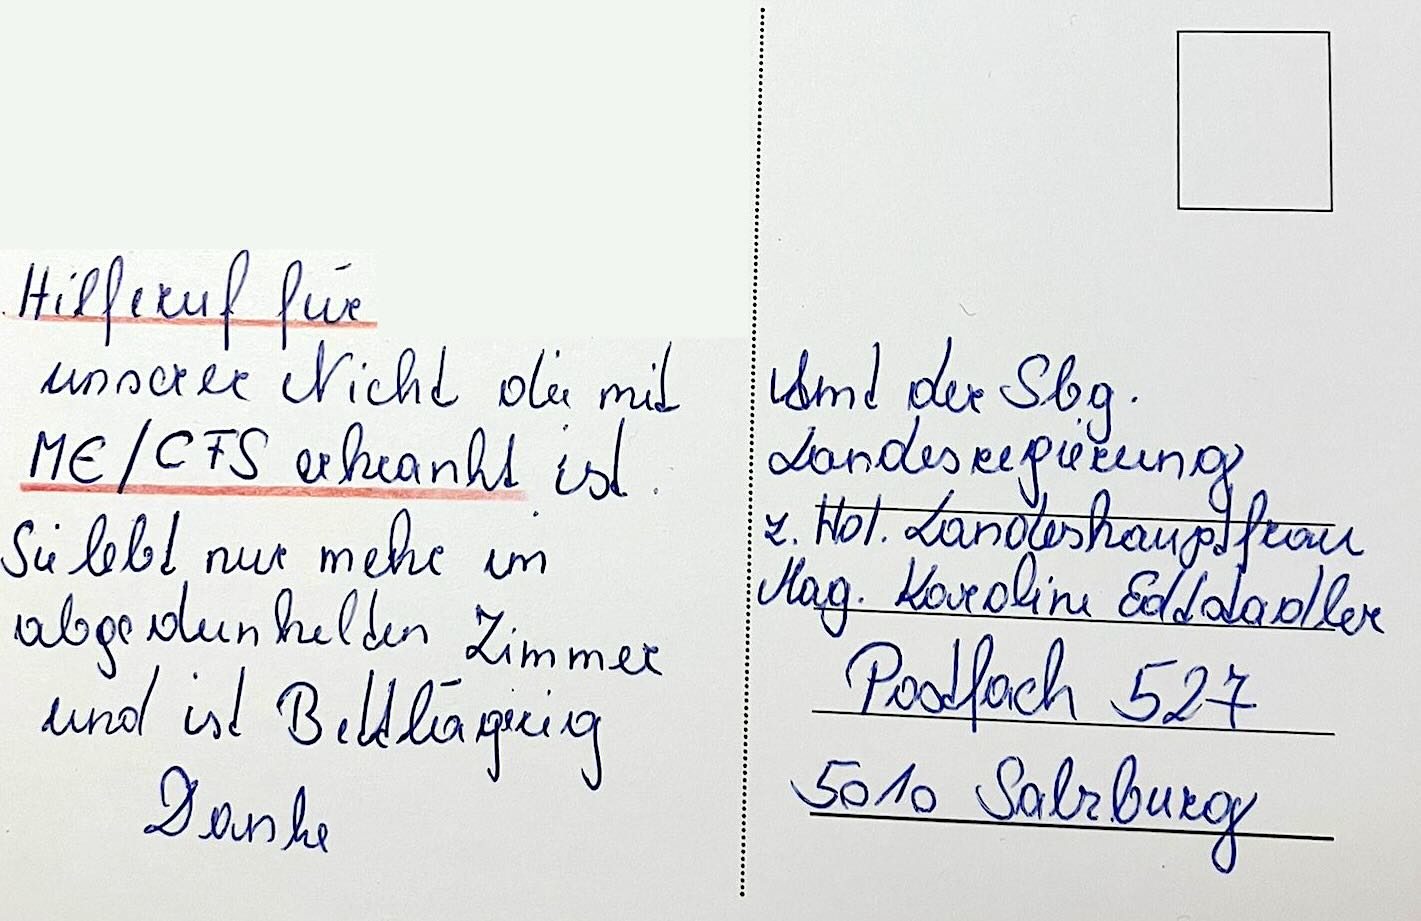 Hilferuf für
unserer Nicht die mit
ME/CFS erkrankt ist.
Sie lebt nur mehr im
abgedunkelten Zimmer
und ist Bettlägerig
Danke
Amt der Sbg.
Landesregierung
z. Hd. Landeshauptfrau
Mag. Karoline Edtstadler
Postfach 527
5010 Salzburg